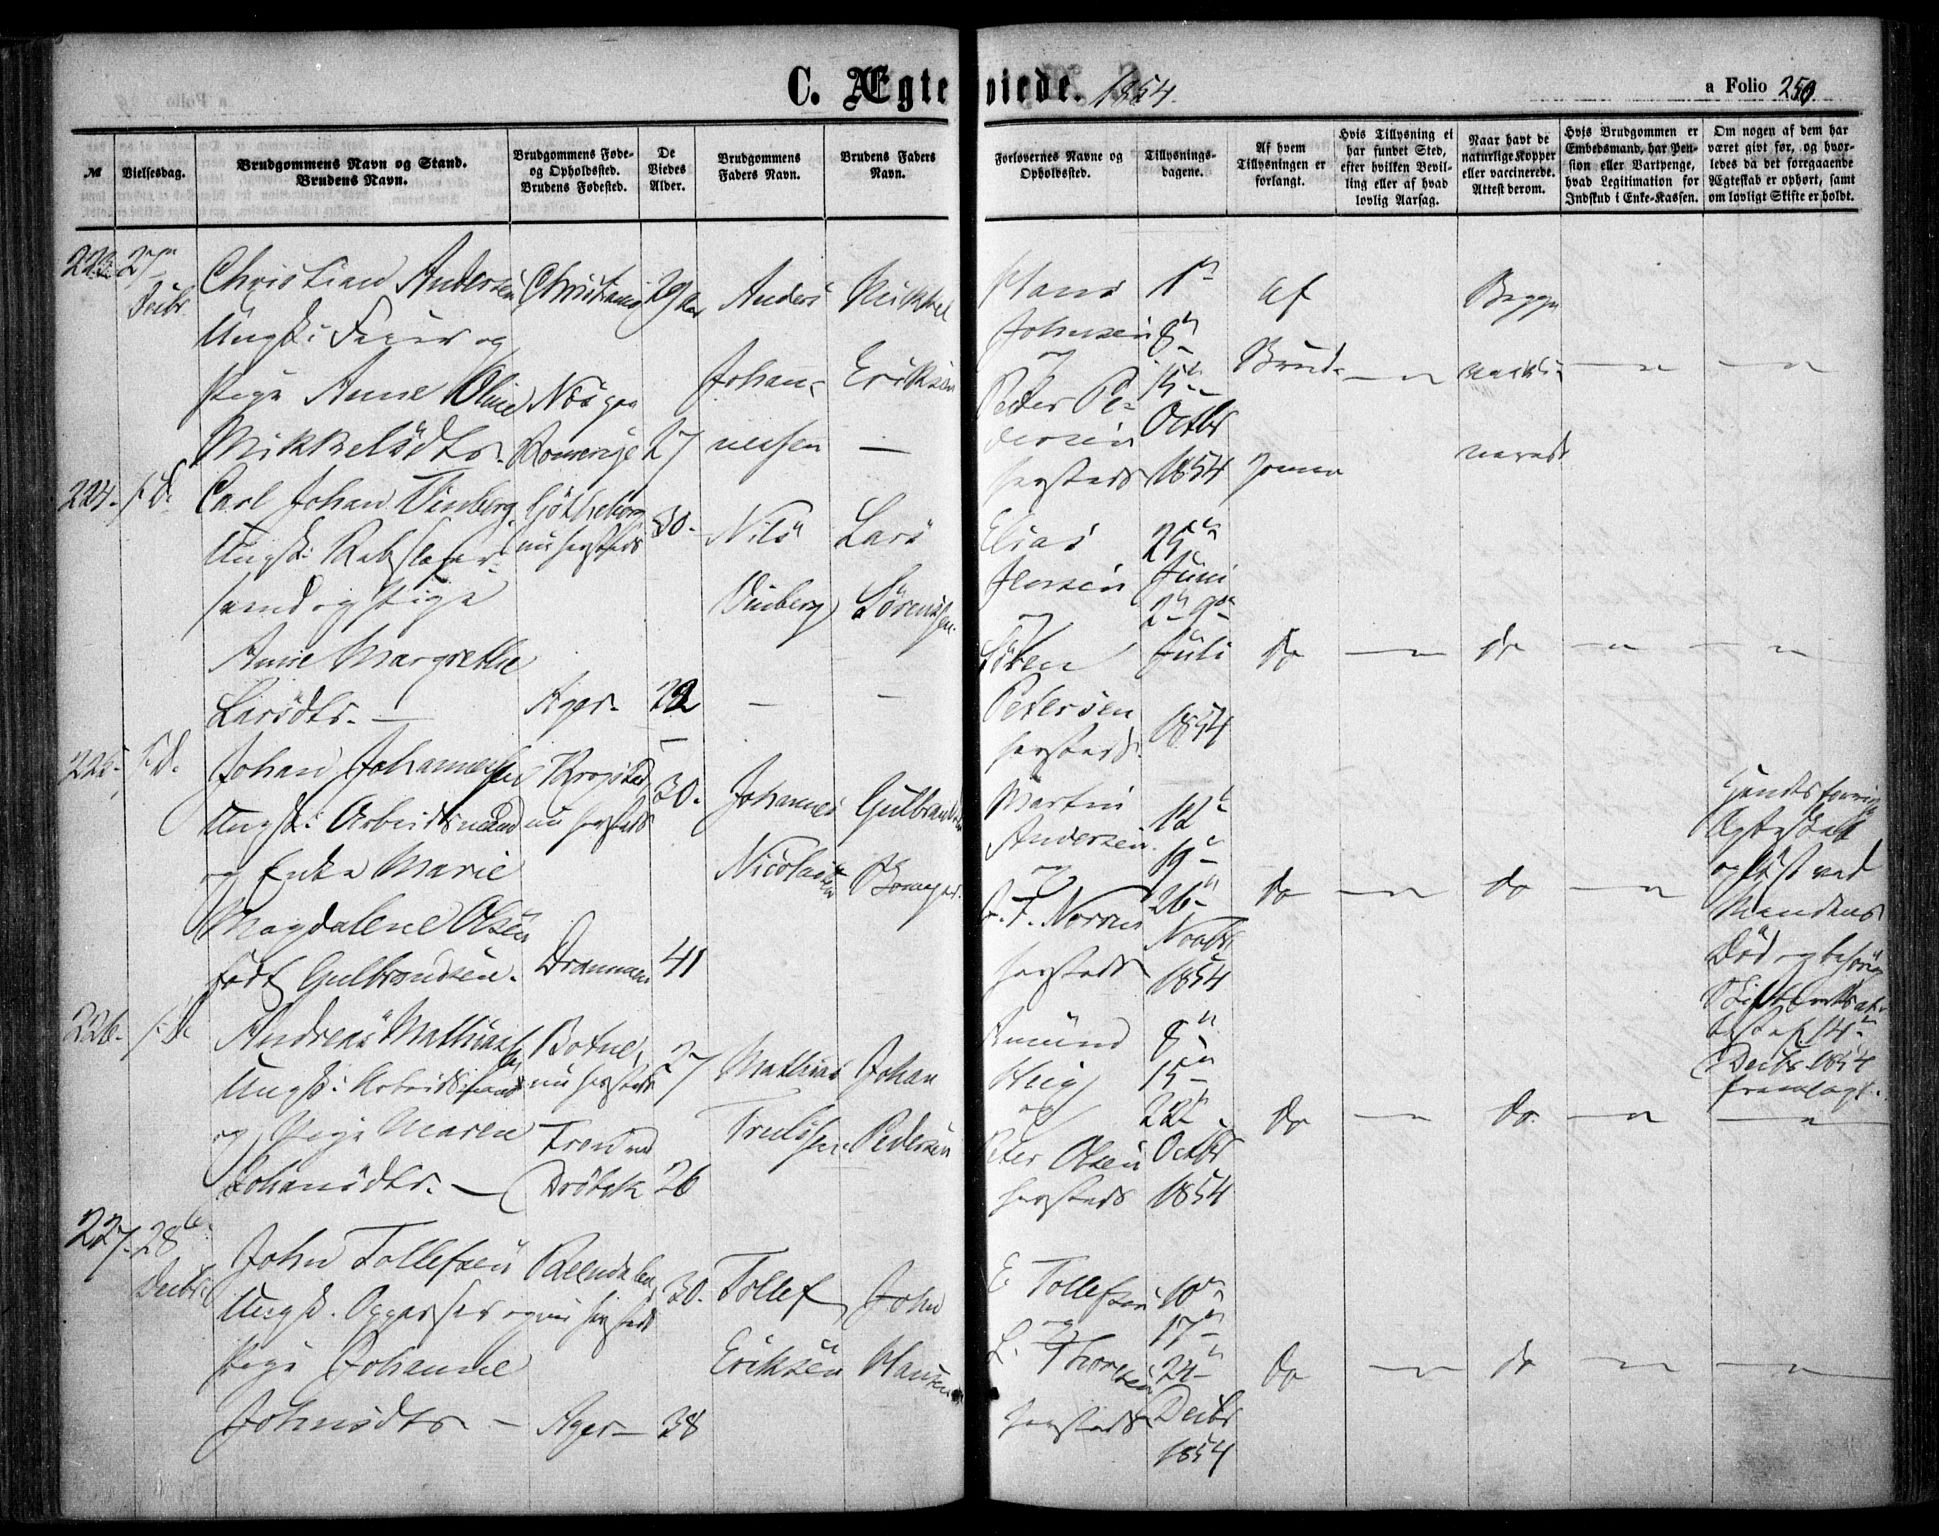 C. Ægteviede. 1854.
a Folio 250.
№
Vielsesdag.
Brudgommens Navn og Stand.
Brudens Navn.
Brudgommens Føde-
og Opholdssted.
Brudens Fødested.
De
Viedes
Alder.
Brudgommens
Faders Navn.
Brudens Faders
Navn.
Forlovernes Navne og
Opholdssted.
Tillysnings-
dagene.
Af hvem
Tillysningen er
forlangt.
Hvis Tillysning ei
har fundet Sted,
efter hvilken Bevil-
ling eller af hvad
lovlig Aarsag.
Naar havt de
naturlige Kopper
eller vaccinerede.
Attest derom.
Hvis Brudgommen er
Embedsmand, har Pen-
sion eller Vartpenge,
hvad Legitimation for
Indskud i Enke-Kassen.
Om nogen af dem har
været givt før, og hvor-
ledes da det foregaaende
Ægteskab er ophørt, samt
om lovligt Skifte er holdt.
223.
27n
Decbr.
Christian Andersen
Ungk: Feier og
Pige Anne Oline
Mikkelsdtr.
Christiania
Næs paa
Romerige
29 Aar
27
Anders
Johan-
nesen
Mikkel
Eriksen
—
Hans
Johnsen
og
Peter Pe-
dersen
hersteds
1n
8n
15n
Octbr
1854
Af
Brud-
gommen
— " —
Begge
vacci-
nerede
— " —
— " —
224.
s. D.
Carl Johan Vinberg
Ungk: Rebslager-
svend og Pige
Anne Margrethe
Larsdtr. —
Gøtheborg
nu hersteds
Ager.
30.
22
Nils
Vinberg
—
Lars
Sørensen.
—
Elias
Jensen
og
Søren
Petersen
hersteds.
25n
Juni
2n 9n
Juli
1854
do
— " —
do
— " —
— " —
225.
s. D.
Johan Johannesen
Ungk: Arbeidsmand
og Enke Marie
Magdalene Olsen
født Gulbrandsen.
Krogstad
nu hersteds
Drammen
30.
41
Johannes
Nicolaisen
Gulbrand
Martin
Andersen
og
hersteds
12n
19n
26n
Novbr
1854
do
— " —
do
— " —
Hendes forrige
Ægteskab
opløst ved
Mandens
Død og behørig
Skifterettsat-
test af 14n
Decbr 1854
fremlagt.
226.
s. D.
Andreas Mathiasen
Ungk: Arbeidsmand
og Pige Maren
Johansdtr. —
Botne,
nu hersteds
Drøbak
27
26
Mathias
Trulssen.
Johan
Pedersen
Amund
og
Peter Olsen
hersteds
8n
15n
22n
Octbr
1854
do
— " —
do.
— " —
— " —
227.
28n
Decbr.
John Tollefsen
Ungk. Oppasser og
Pige Johanne
Johnsdtr —
Rendalen
nu hersteds
Ager —
30.
38
Tollef
Eriksen
John
Hansen
E Tollefsen
og
L. Thoresen
hersteds
10n
17n
24n
Decbr
1854
do
— " —
do
— " —
— " —